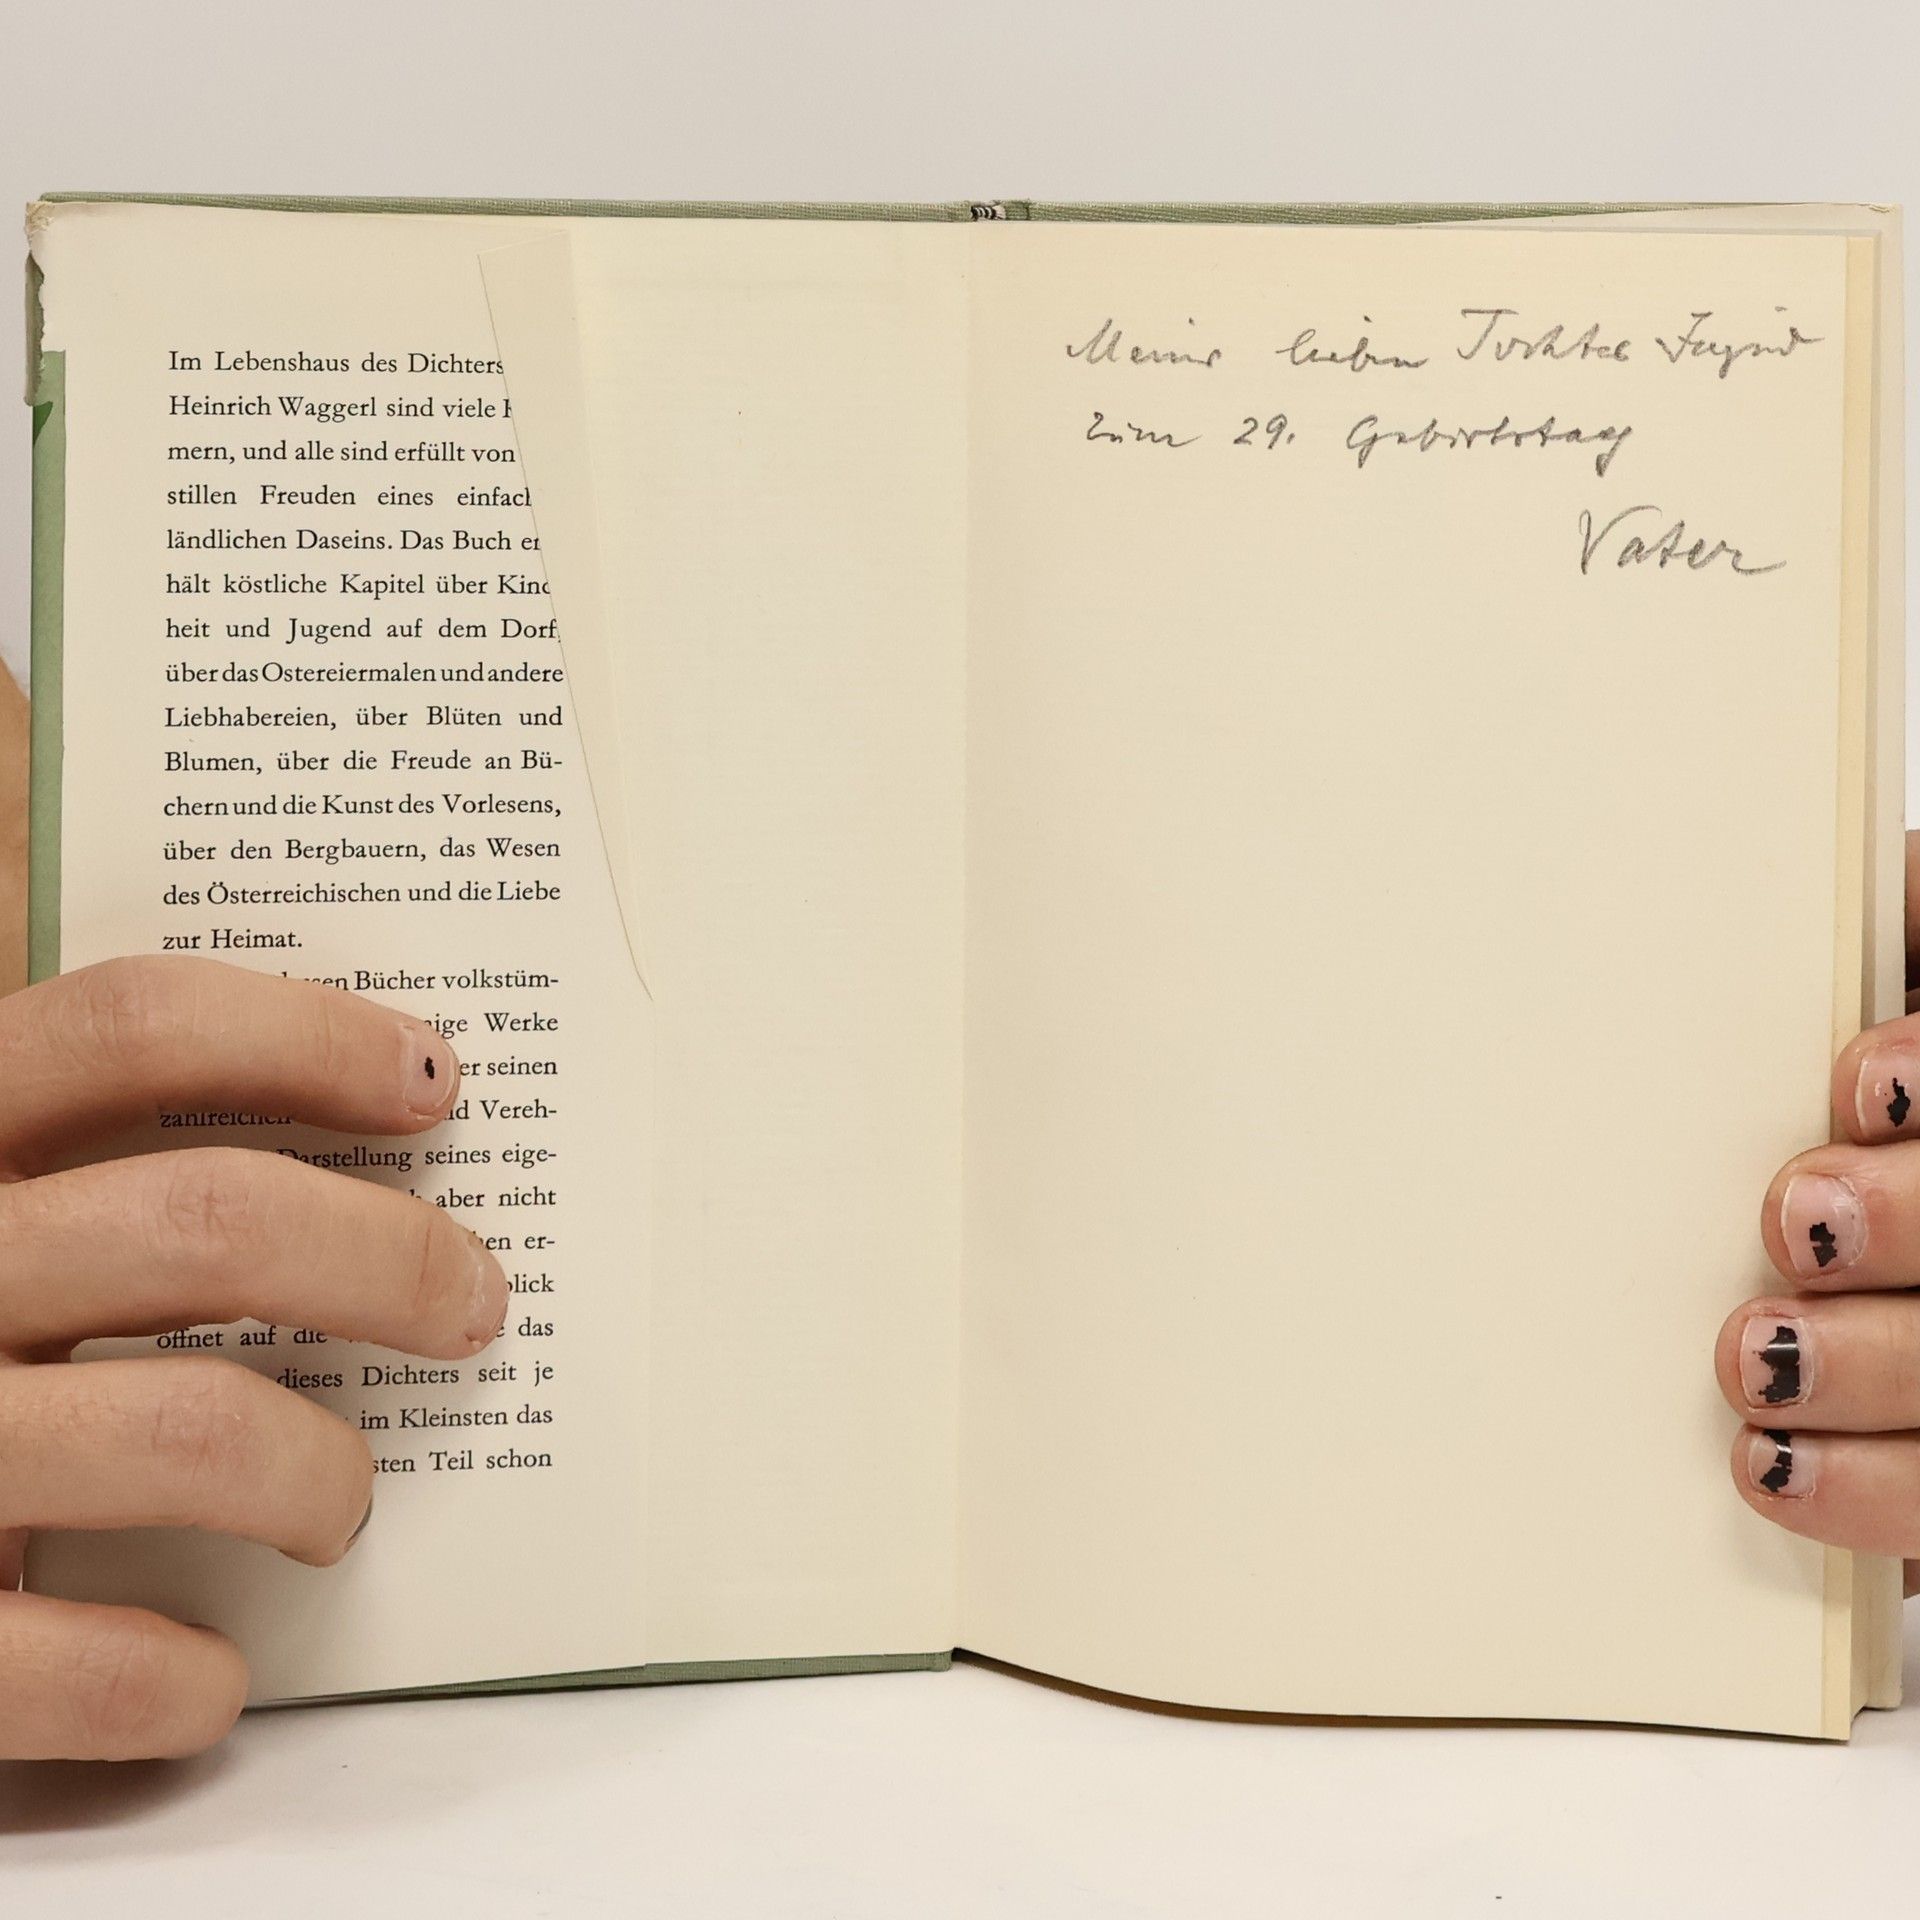 Im Lebenshaus des Dichters
Heinrich Waggerl sind viele
mern, und alle sind erfüllt von
stillen Freuden eines einfach
ländlichen Daseins. Das Buch
hält köstliche Kapitel über Kind
heit und Jugend auf dem Dorf,
über das Ostereiermalen und andere
Liebhabereien, über Blüten und
Blumen, über die Freude an Bü-
chern und die Kunst des Vorlesens,
über den Bergbauern, das Wesen
des Österreichischen und die Liebe
zur Heimat.
Bücher volkstüm-
Werke
er seinen
zahlreichen Vereh-
Darstellung seines eige-
aber nicht
er-
blick
öffnet auf die das
dieses Dichters seit je
im Kleinsten das
sten Teil schon
Meiner lieben Tochter
zum 29. Geburtstag
Vater